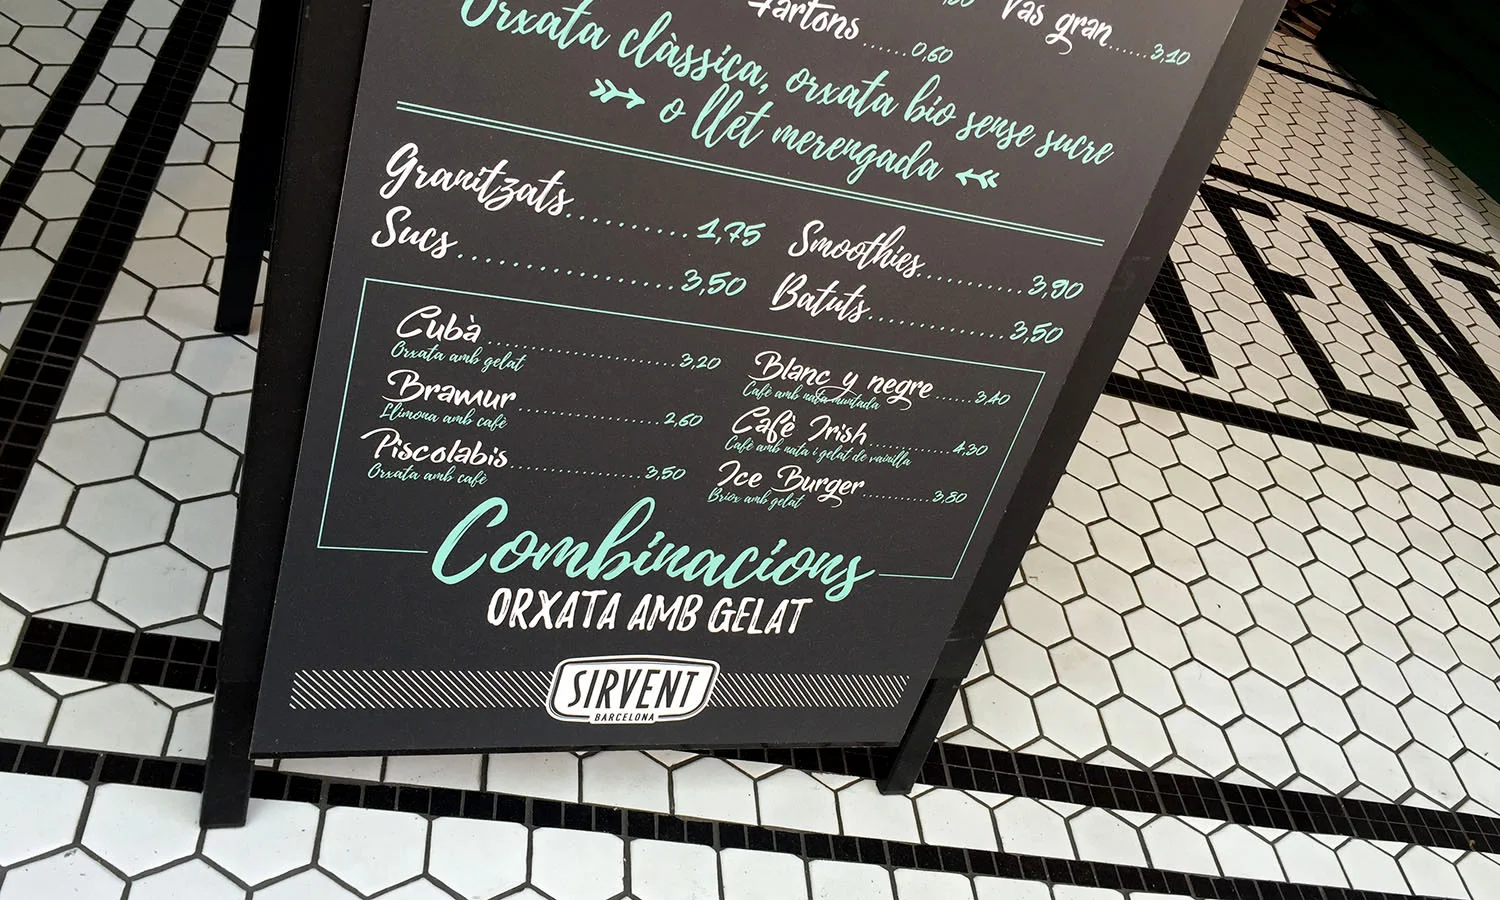 Tartons......0,60
Vas gran......3,10
Orxata clàssica, orxata bio sense sucre
o llet merengada
Granitzats..............1,75
Sucs........................3,50
Smoothies............3,90
Batuts................3,50
Cubà.........................3,20
Orxata amb gelat
Bramur.................2,60
Llimona amb cafè
Piscolabis.................3,50
Orxata amb cafè
Blanc y negre......3,40
Cafè amb nata muntada
Cafè Irish.............4,30
Cafè amb nata i gelat de vainilla
Ice Burger...........3,80
Briox amb gelat
Combinacions
ORXATA AMB GELAT
SIRVENT
BARCELONA